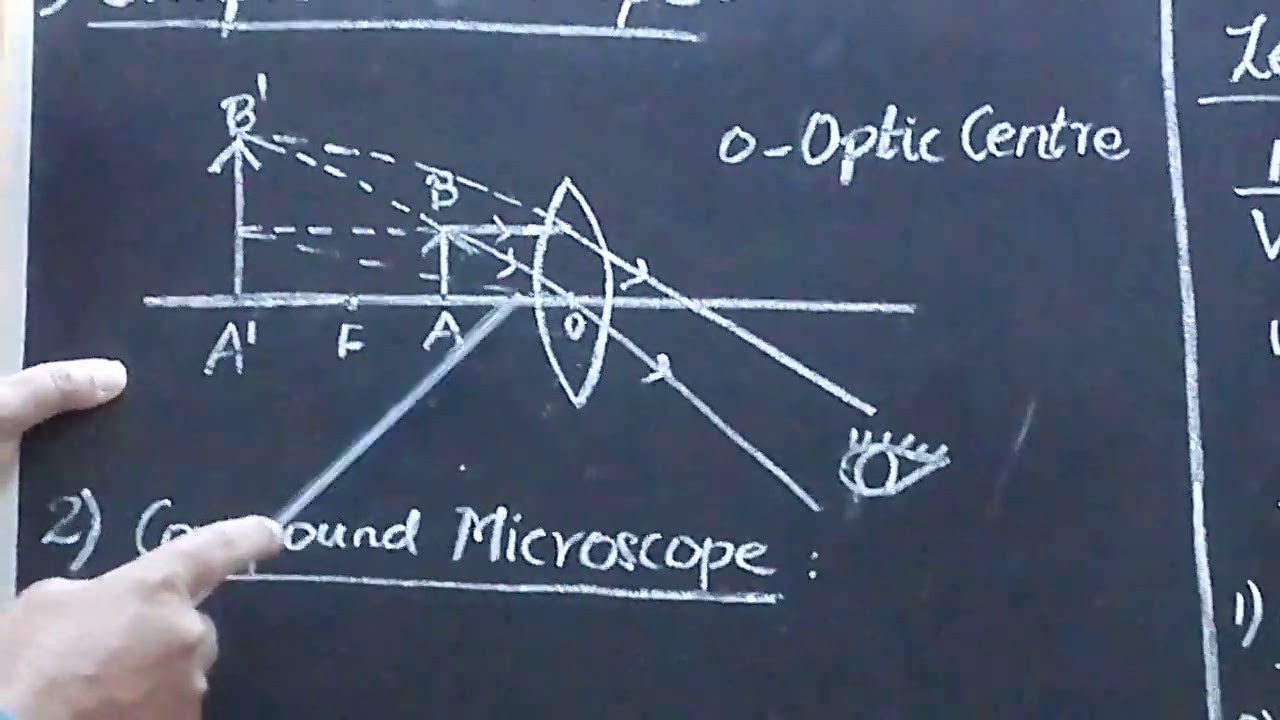 B'
O-Optic Centre
B
A'
F
A
O
2) Co ound Microscope :
1)